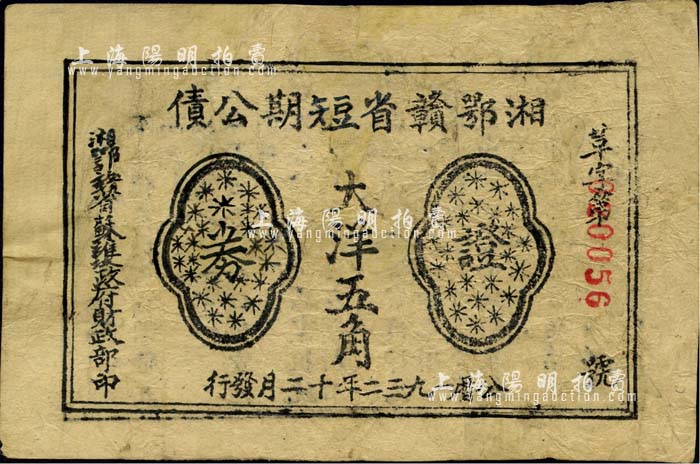 上海陽明拍賣
www.yangmingauction.com
湘鄂贛省短期公債
草字第
020056
號
證
大洋五角
券
湘鄂贛省蘇維埃政府財政部印
公曆一九三二年十二月發行
上海陽明拍賣
www.yangmingauction.com
上海陽明拍賣
www.yangmingauction.com